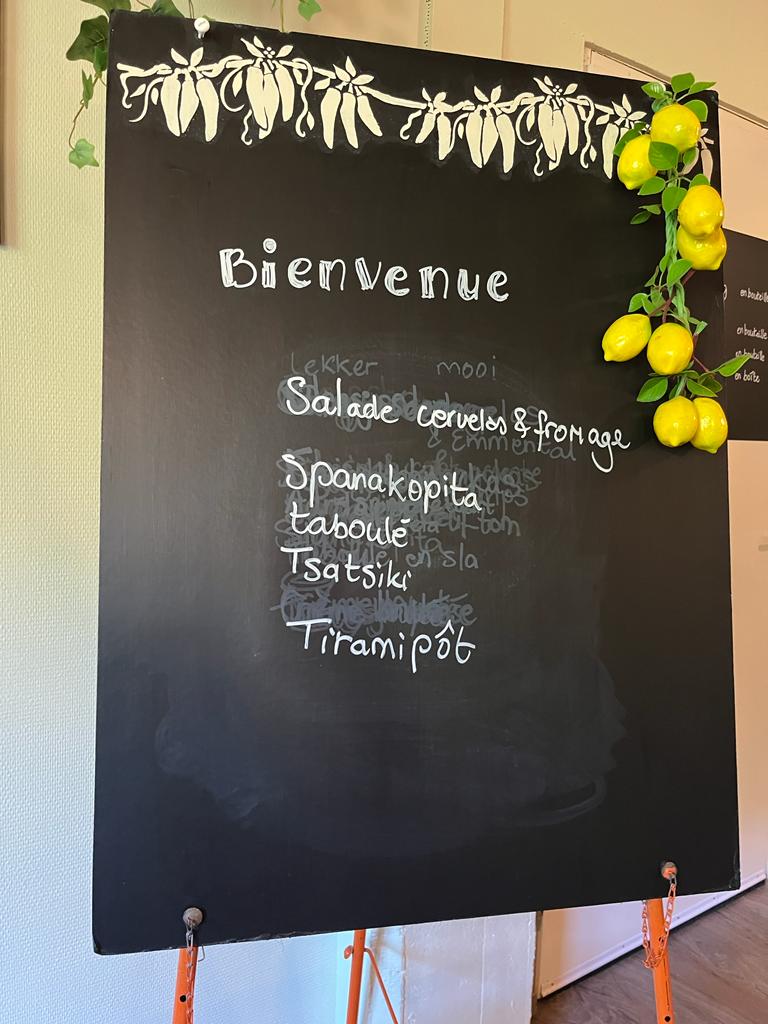 Bienvenue
Lekker mooi
Salade cervelas & fromage
& Emmental
Spanakopita
taboulé
Tsatsiki
Tiramipôt
en bouteille
en bouteille
en bouteille
en boîte